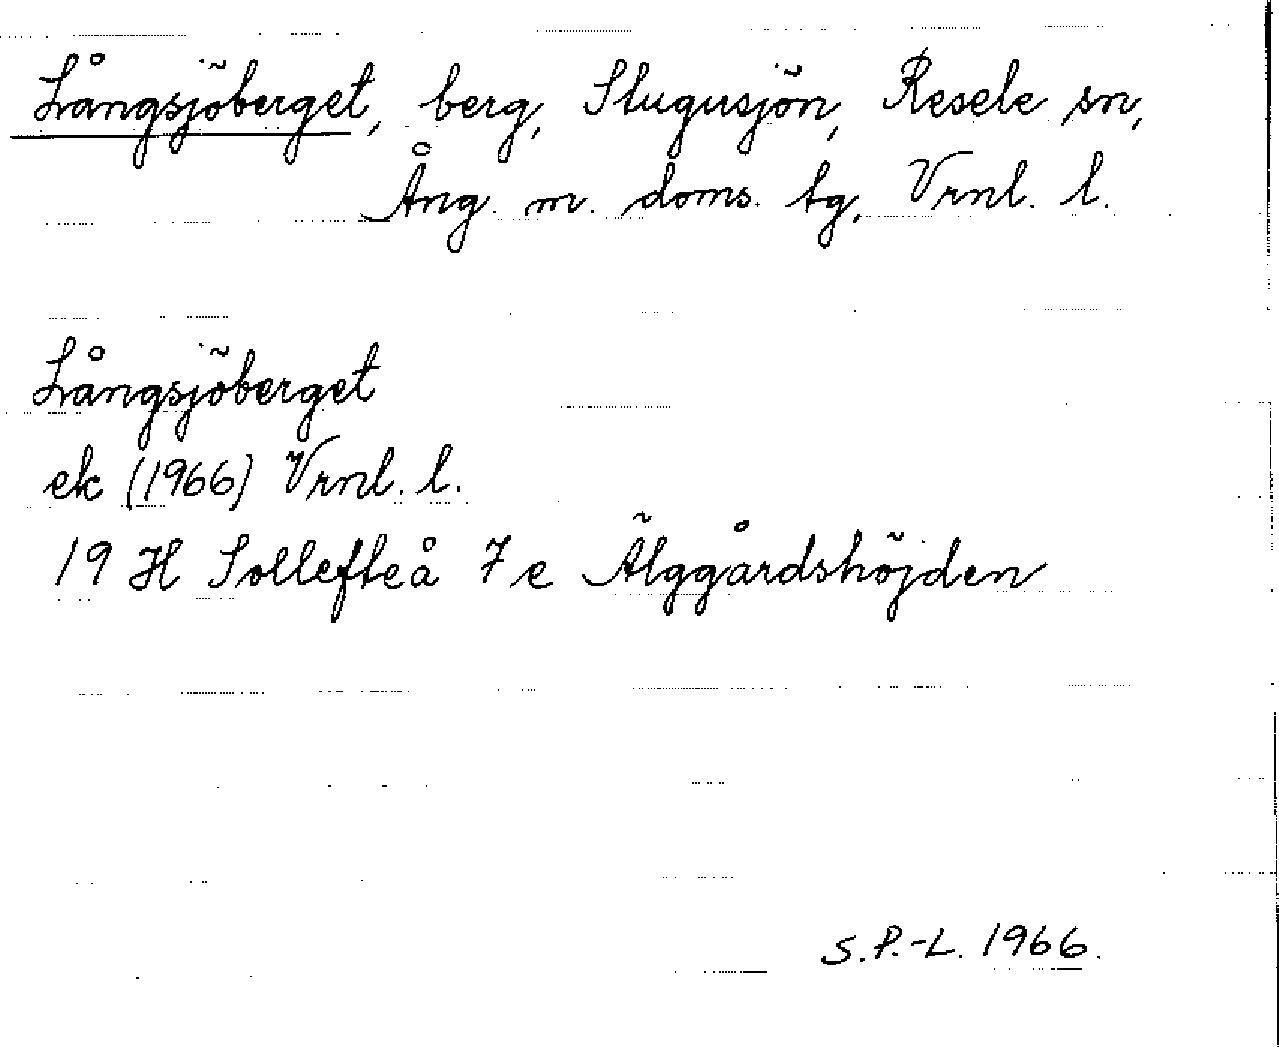 Långsjöberget, berg, Slugusjön, Resele sn,
Ång. m. doms. tg, Vrnl. l.
Långsjöberget
ek (1966) Vrnl. l.
19 H Sollefteå 7 e Älggårdshöjden
S.P.-L. 1966.